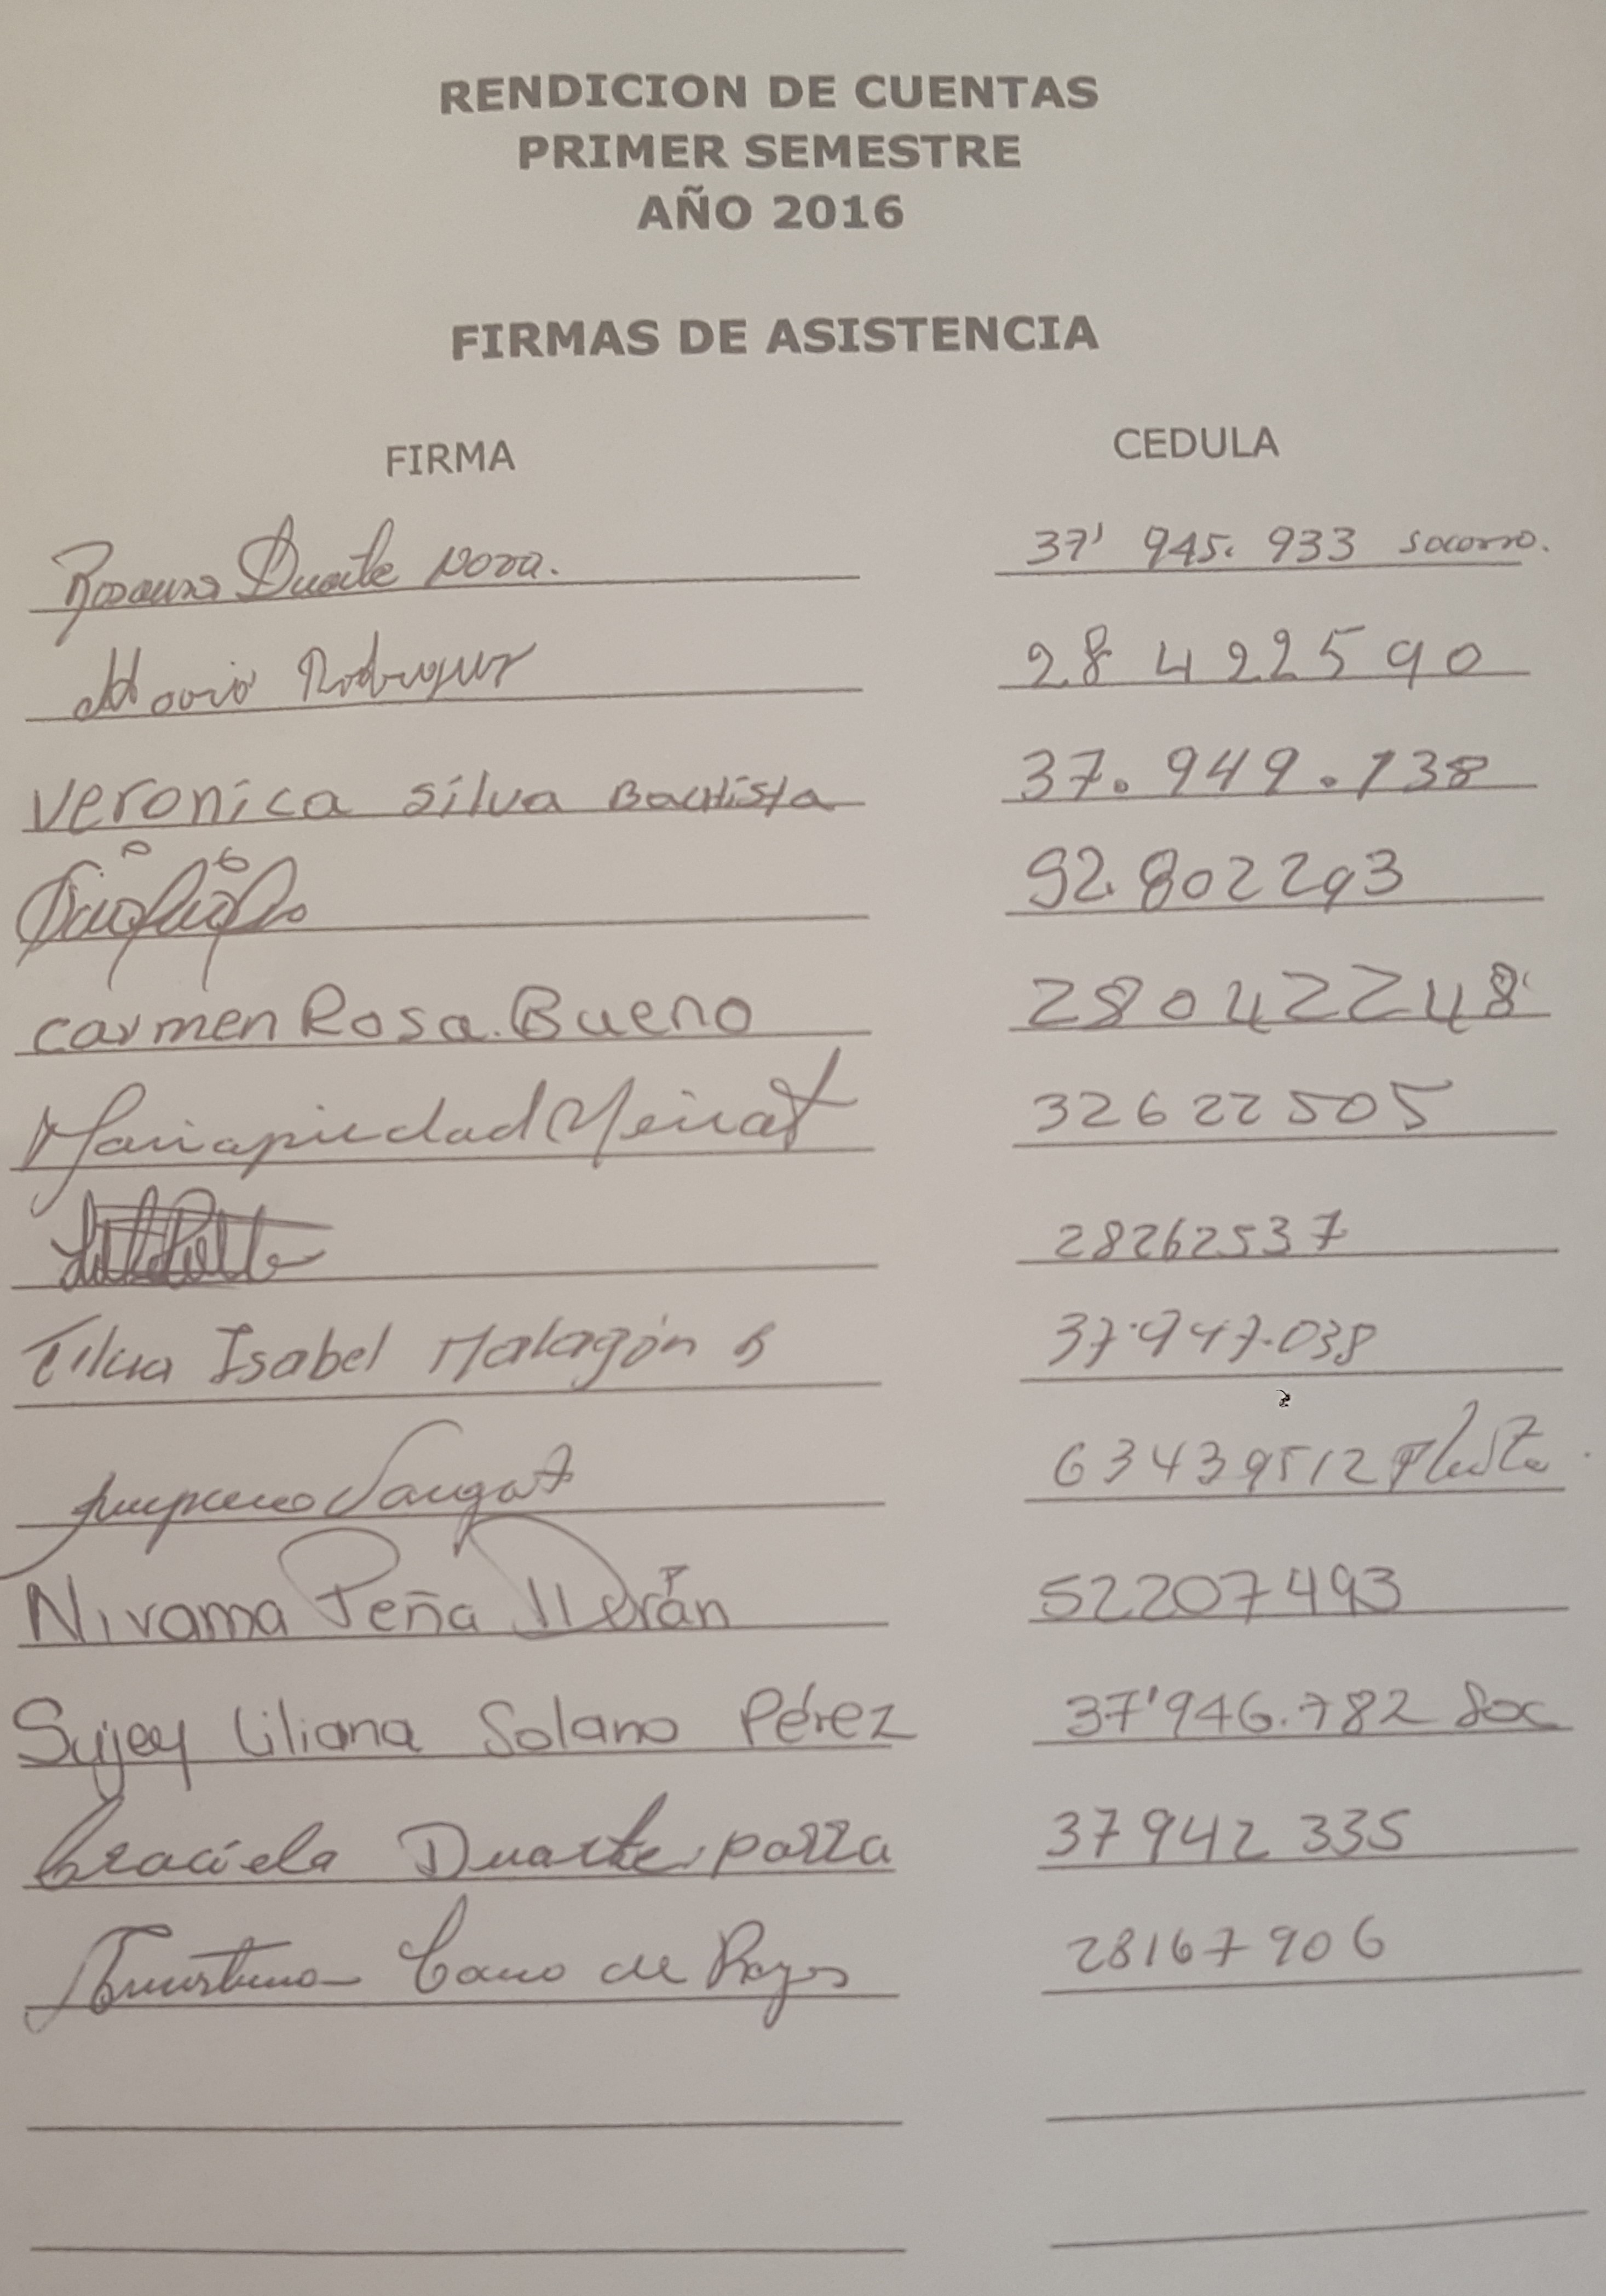 RENDICION DE CUENTAS
PRIMER SEMESTRE
AÑO 2016
FIRMAS DE ASISTENCIA
FIRMA CEDULA
Rosaura Duarte Nova. 37' 945. 933 Socorro.
Maria Rodriguez 28 422590
Veronica Silva Bautista 37.949.138
92.802293
Carmen Rosa.Bueno 28042248
Mariapiedad 32622505
28262537
Isabel Malagón B 37.947.038
Vargas 63439512
Nivama Peña Terán 52207493
Sujey Liliana Solano Pérez 37'946.782 Soc
Graciela Duarte parra 37942 335
Cano de Reyes 28167906